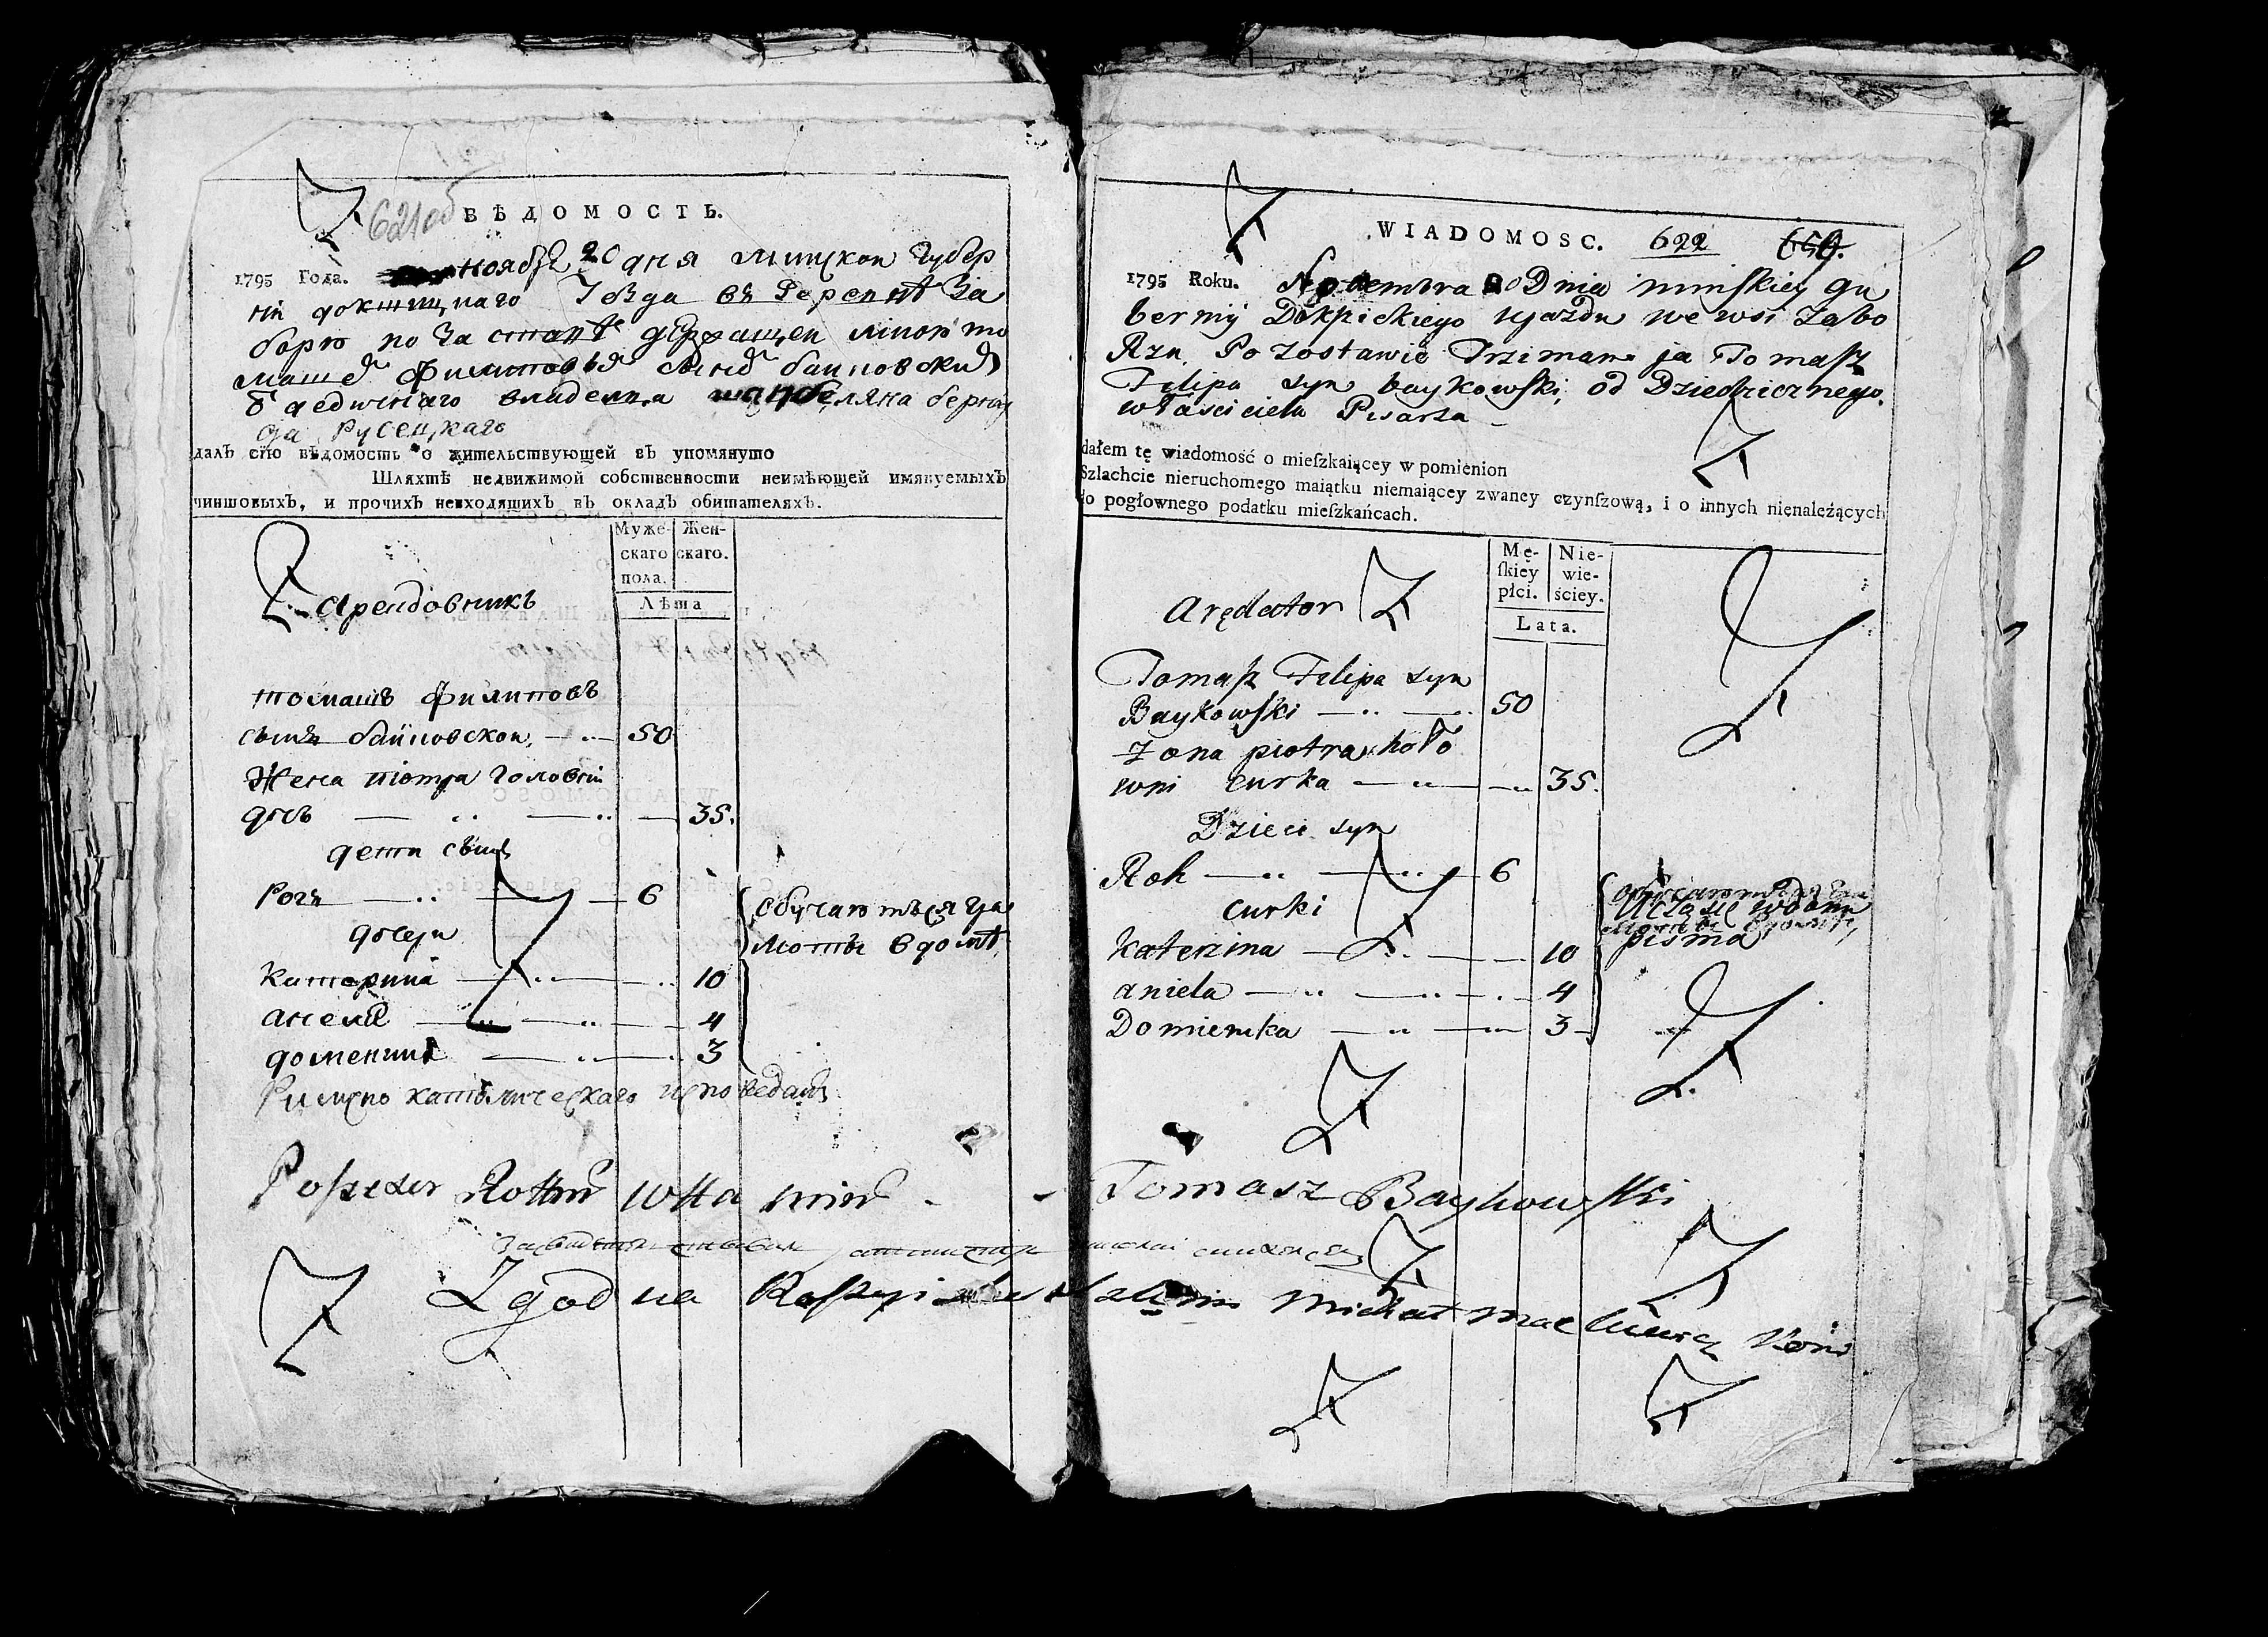 621об
ВѢДОМОСТЬ.
1795 Года. ноября 20 дня минской Губер
нїи докшицкаго Уезда въ деревнѣ За
борю по за ставѣ держащей мною то
машемъ Филиповъ сынъ байковскимъ
ѿ дедичнаго владелца шанбеляна берна
да Русецкаго
далъ сїю вѣдомость о жительствующей въ упомянуто
Шляхтѣ недвижимой собственности неимѣющей имянуемыхъ
чиншовыхъ, и прочихъ невходящихъ въ окладъ обитателяхъ.
Муже-
скаго
пола.
Жен-
скаго.
Лѣта
Арендовникъ
томашъ Филиповъ
сынъ байковской 50
Жена піотра Головни
дочь 35.
дети сынъ
Рохъ 6
дочери
Катерина 10
анеля 4
доменика 3
обучаются гра
моты в доме
Римско католическаго исповедания
WIADOMOSC. 622
1795 Roku. Dnia minskiey gu
bernij Dokszickiego ujazdu we wsi Zabo
Rzu Po zostawie Trziman ja Tomasz
Filipa syn baykowski, od Dziedzicznego
właściciela Pisarza
dałem tę wiadomość o mieſzkaiącey w pomienion
Szlachcie nieruchomego maiątku niemaiącey zwaney czynſzową, i o innych nienależących
do pogłownego podatku mieſzkańcach.
Mę-
ſkiey
płci.
Nie-
wie-
ściey.
Lata.
Arędator
Tomasz Filipa syn
Baykowski 50
Zona piotra hoło
wni curka 35.
Dzieci syn
Roh 6
curki
Katerzina 10
aniela 4
Domienika 3
Ucza się w domu
pisma
Tomasz Baykowski
Zgodna Michał